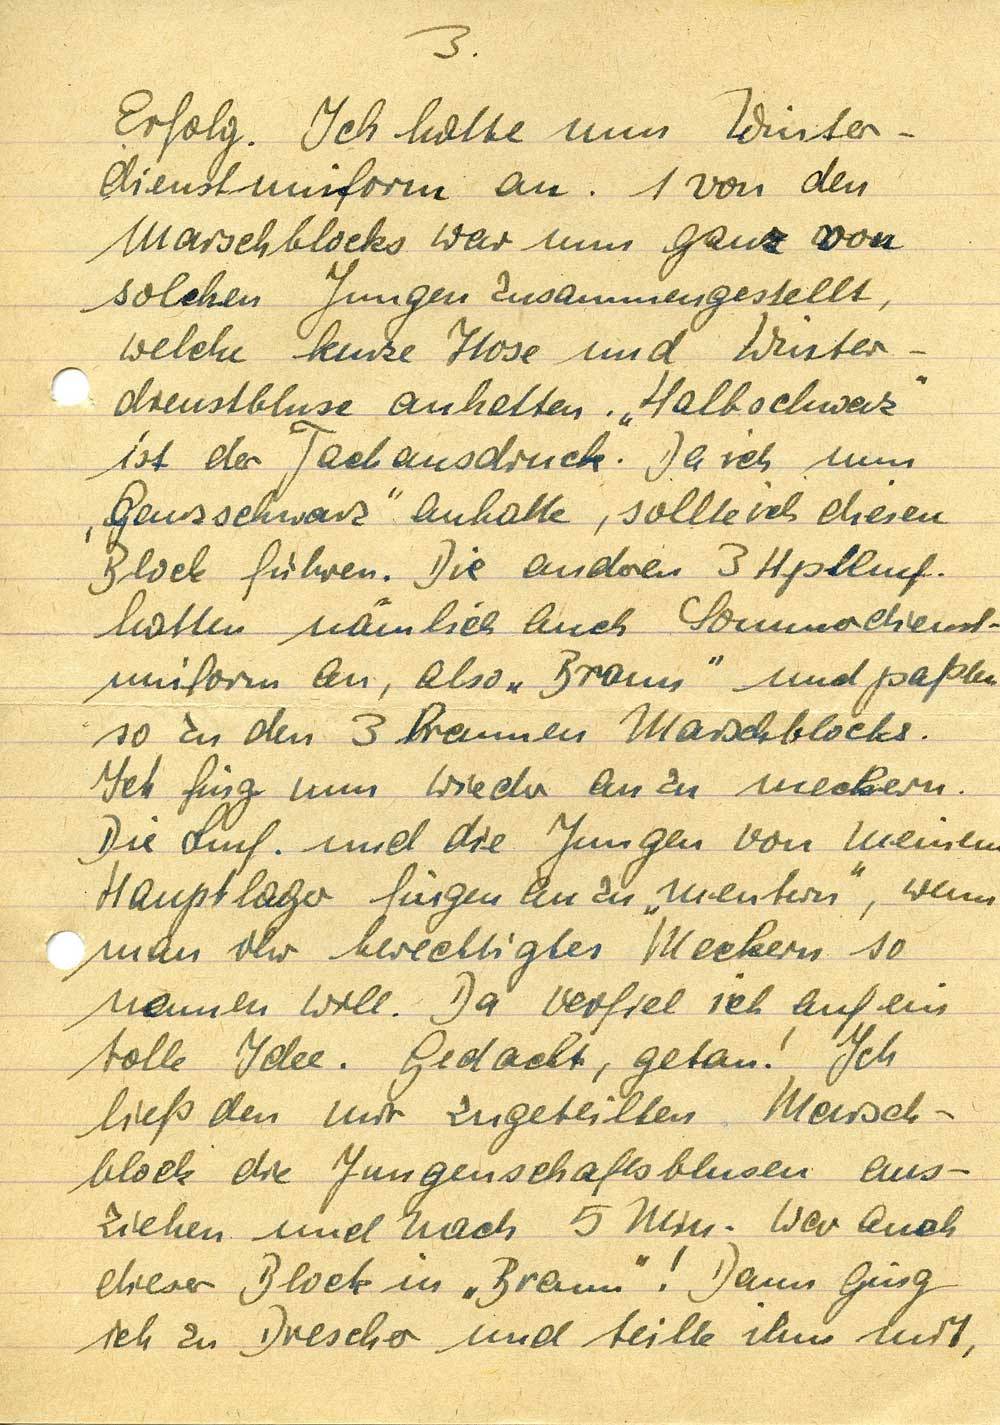 3.
Erfolg. Ich hatte nun Winter-
dienstuniform an. 1 von den
Marschblocks war nun ganz von
solchen Jungen zusammengestellt,
welche kurze Hose und Winter-
dienstbluse anhatten. „Halbschwarz"
ist der Fachausdruck. Da ich nun
„Ganzschwarz" anhatte, sollte ich diesen
Block führen. Die andren 3 Hptlmf.
hatten nämlich auch Sommerdienst-
uniform an, also „Braun" und paßten
so zu den 3 braunen Marschblocks.
Ich fing nun wieder an zu meckern.
Die Lmf. und die Jungen von meinem
Hauptlager fingen an zu „meutern", wenn
man ihr berechtigtes Meckern so
nennen will. Da verfiel ich auf ein
tolle Idee. Gedacht, getan! Ich
ließ den mir zugeteilten Marsch-
block die Jungenschaftsblusen aus-
ziehen und nach 5 Min. war auch
dieser Block in „Braun"! Dann ging
ich zu Drescher und teilte ihm mit,